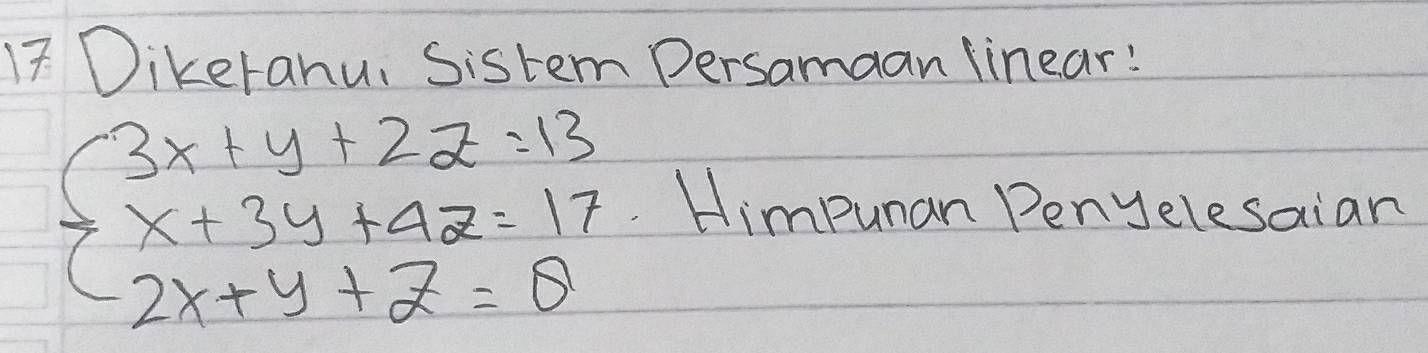 17 Diketahui Sistem Persamaan linear:
3x + y + 2z = 13
x + 3y + 4z = 17. Himpunan Penyelesaian
2x + y + z = 8